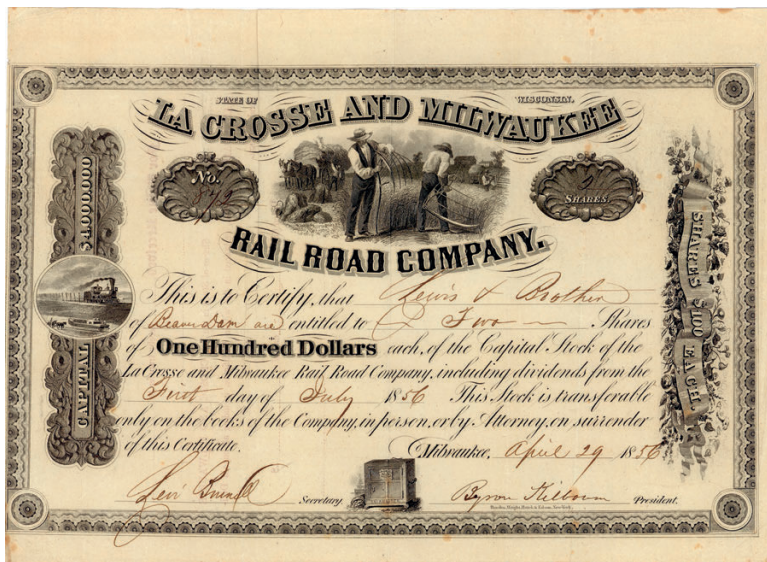 STATE OF WISCONSIN.
LA CROSSE AND MILWAUKEE
No.
2
SHARES
RAIL ROAD COMPANY.
CAPITAL $4,000,000
SHARES $100 EACH
This is to Certify, that Lewis & Brother
of Beaver Dam are entitled to Two Shares
of One Hundred Dollars each, of the Capital Stock of the
La Crosse and Milwaukee Rail Road Company, including dividends from the
First day of July 1856 This Stock is transferable
only on the books of the Company, in person, or by Attorney, on surrender
of this Certificate. Milwaukee, April 29 1856
Levi Secretary. Byron Kilbourn President.